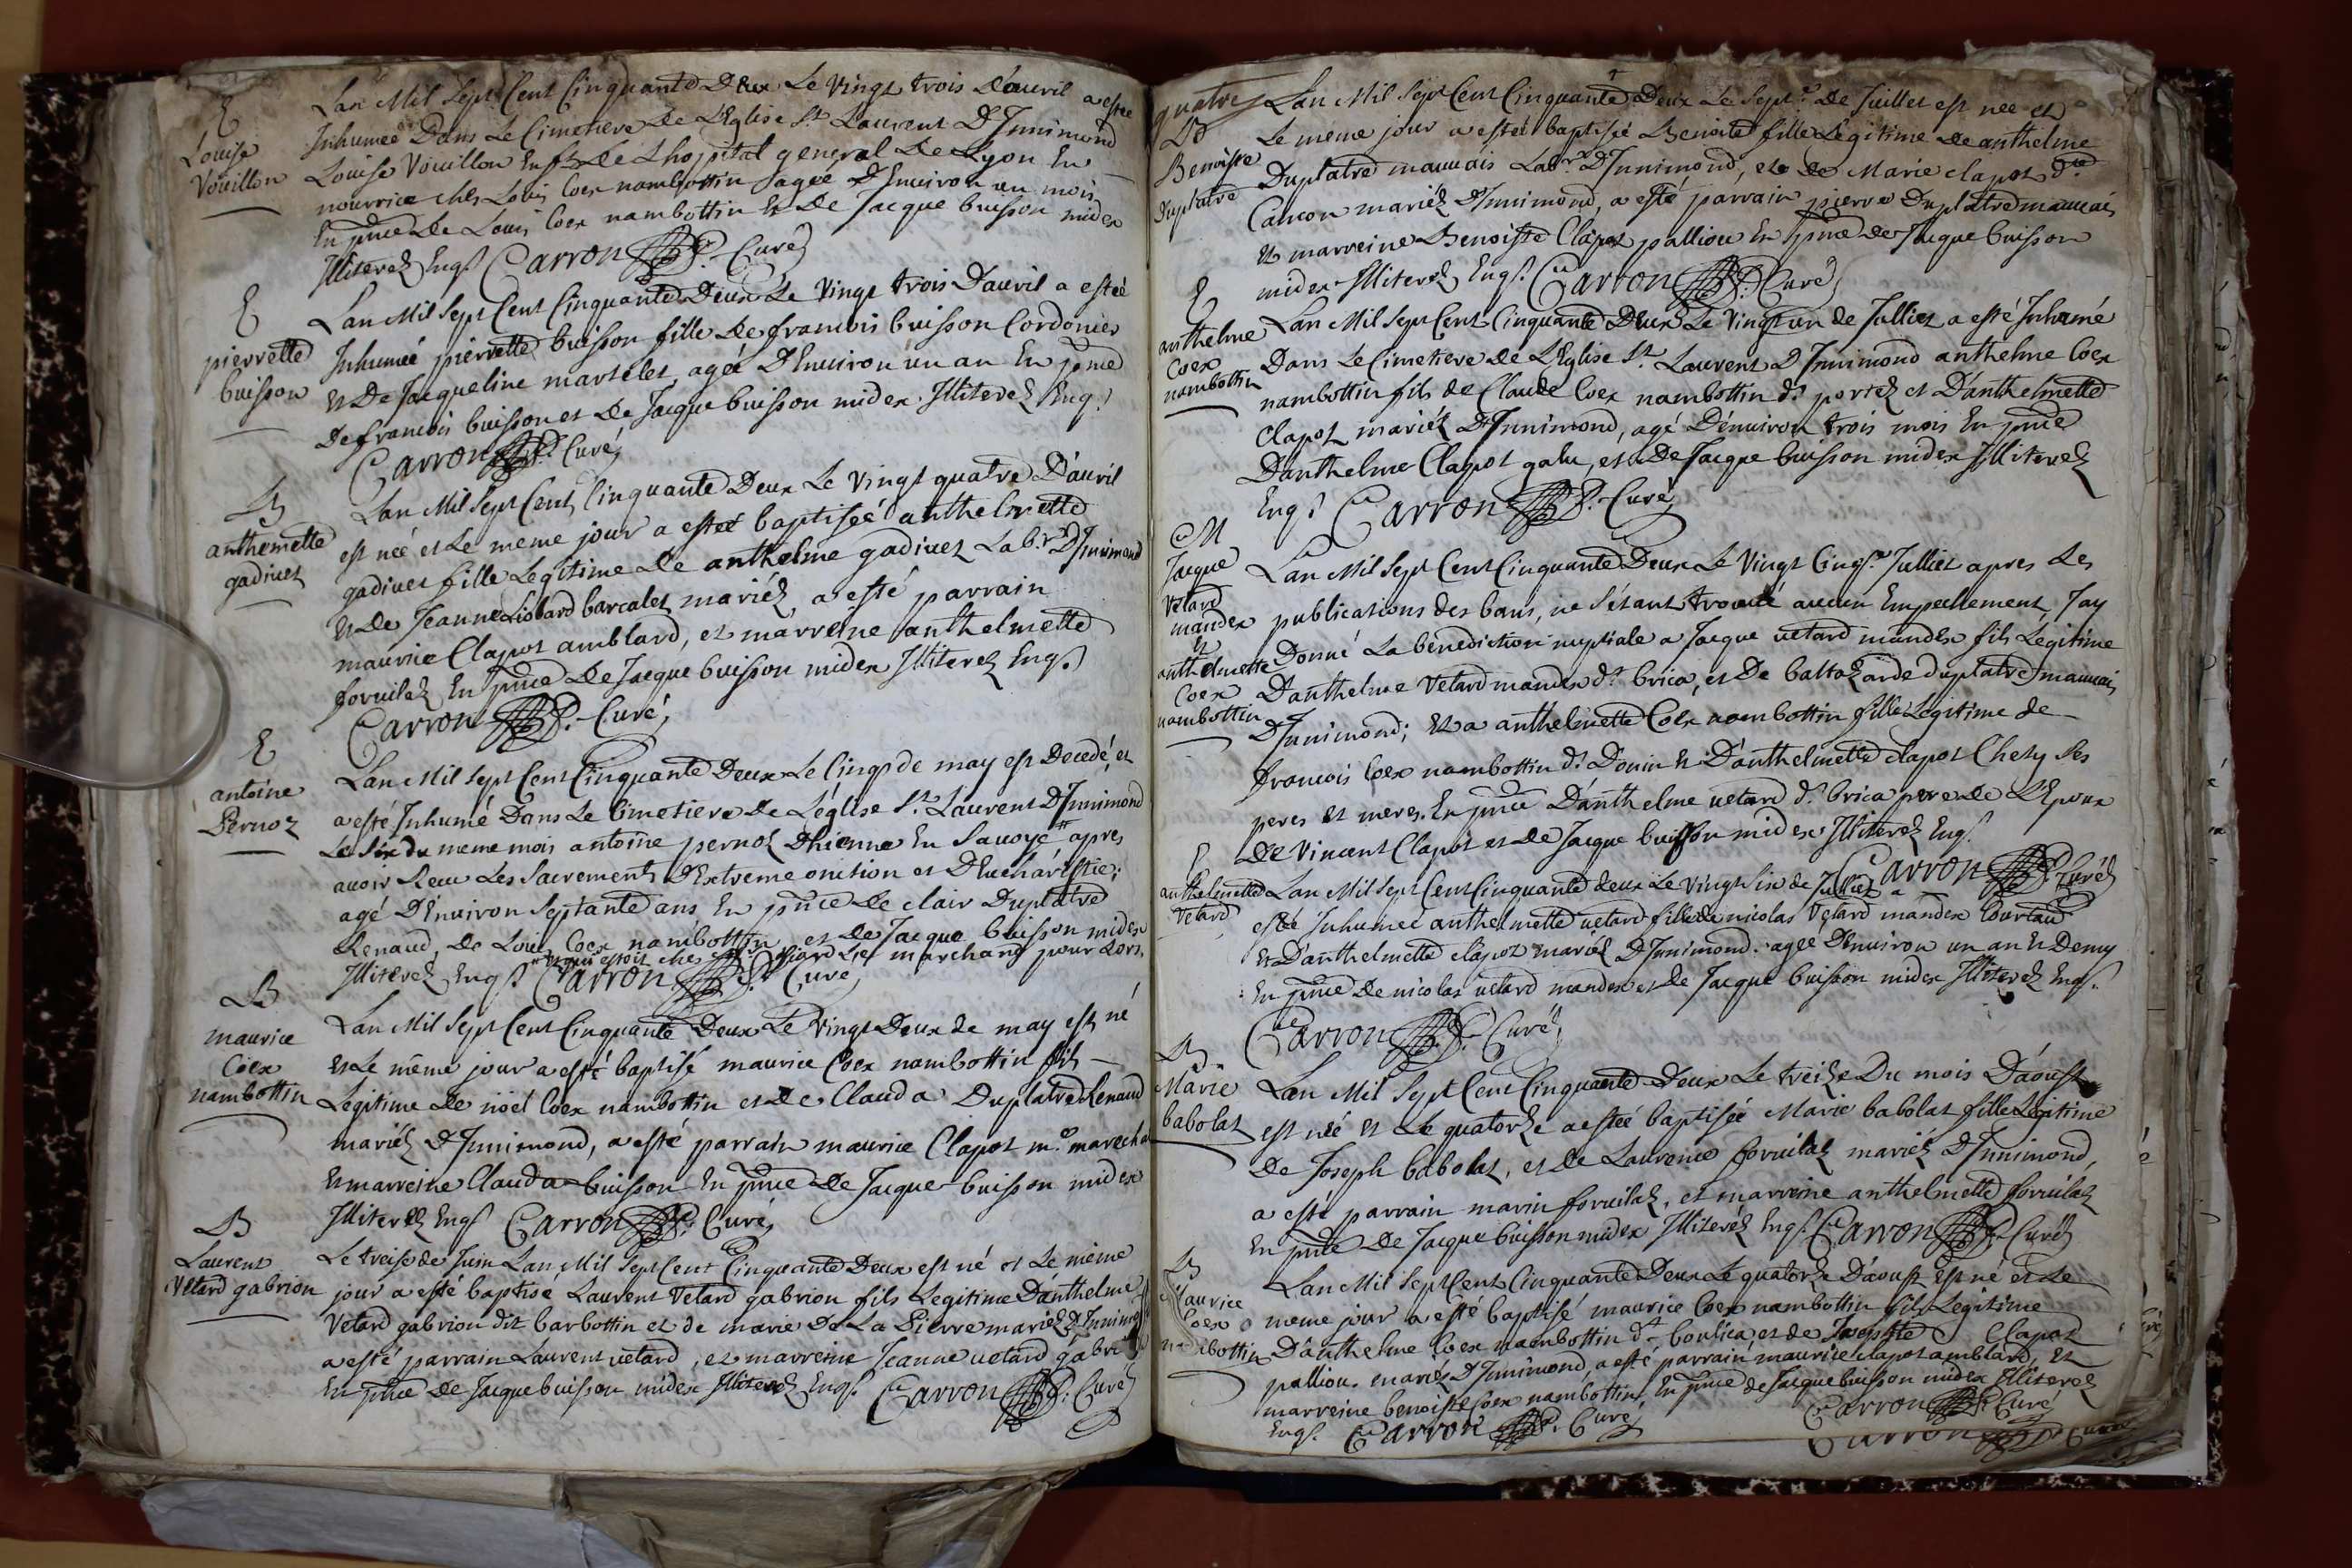 E
Louise
Vouillon
Lan Mil Sept Cent Cinquante Deux Le Vingt trois d'auril a estee
Inhumee Dans Le Cimetiere De L'Eglise St. Laurent D'Innimond
Louise Vouillon De Lhopital general De Lyon En
nourrice ches Louis Coex nambottin agee D'Enuiron un mois
En pnce De Louis Coex nambottin Et De Jacque buisson midex
Illiterez Enqs. Carron Curé
E
pierrette
buisson
Lan Mil Sept Cent Cinquante Deux Le Vingt trois Dauril a esteé
Inhumeé pierrette buisson fille De francois buisson Cordonier
Et De Jacqueline martelet, ageé D'Enuiron un an En pnce
De francois buisson et De Jacque buisson midex Illiterez Enqs.
Carron Curé
B
anthemette
gadiuet
Lan Mil Sept Cent Cinquante Deux Le Vingt quatre D'auril
est neé et Le meme jour a esteé baptiseé anthelmette
gadiuet fille Legitime De anthelme gadiuet Labr. D'Innimond
Et De Jeanne Liobard barcalet mariéz, a esté parrain
maurice Clapot amblard, et marreine anthelmette
foruilaz En pnce De Jacque buisson midex Illiterez Enqs.
Carron Curé
E
antoine
Pernoz
Lan Mil Sept Cent Cinquante Deux Le Cinqs de may est Decedé, et
a esté Inhumé Dans Le Cimetiere De L'église St. Laurent D'Innimond
Le Six du meme mois antoine pernoz Dhienne En Sauoye # apres
auoir Receu Les Sacrements D'Extreme onction et D'Eucharistie;
agé D'Enuiron Septante ans En pnce De clair Duplatre
Renaud, De Louis Coex nambottin et De Jacque buisson midex
# Et qui estoit ches marchand pour Lors.
Illiterez Enqs. Carron Curé
B
maurice
Coex
nambottin
Lan Mil Sept Cent Cinquante Deux Le Vingt Deux de may est né
Et Le même jour a esté baptisé maurice Coex nambottin fils
Legitime De noël Coex nambottin et De Clauda Duplatre Renaud
mariéz D'Innimond, a esté parrain maurice Clapot me. marecha
Et marreine Clauda buisson En pnce De Jacque buisson midex
Illiterez Enqs Carron Curé
B
Laurent
Vetard gabrion
Le treise de Juin Lan Mil Sept Cent Cinquante Deux est né et Le même
jour a esté baptisé Laurent Vetard gabrion fils Legitime D'anthelme
Vetard gabrion dit barbottin et de marie De La Pierre mariéz D'Innimond
a esté parrain Laurent uetard, et marreine Jeanne uetard gabrion
En pnce De Jacque buisson midex Illiterez Enqs. Carron Curé
quatre
B
Benoiste
Duplatre
Lan Mil Sept Cent Cinquante Deux Le Sept.e De Juillet est née et
Le meme jour a esteé baptiseé Benoite fille Legitime de anthelme
Duplatre mauuais Labr. D'Innimond, et de Marie clapot de.
Cancon mariéz D'Innimond, a esté parrain pierre Duplatre mauuais
Et marreine Benoiste Clapot palliou En pnce de Jacque buisson
midex Illiterez Enqs. Carron Curé
E
anthelme
Coex
nambottin
Lan Mil Sept Cent Cinquante Deux Le Vingt un de Julliet a esté Inhumé
Dans Le Cimetiere De L'Eglise St. Laurent D'Innimond anthelme Coex
nambottin fils de Claude Coex nambottin dt. poriez et D'anthelmette
Clapot mariéz D'Innimond, agé D'enuiron trois mois En pnce
Danthelme Clapot galu, et De Jacque buisson midex Illiterez
Enqs. Carron Curé
M
Jacque
Vetard
mandex
et
anthelmette
Coex
nambottin
Lan Mil Sept Cent Cinquante Deux Le Vingt Cinqs. Julliet apres Les
publications des bans, ne s'étant trouué aucun Empechement, Jay
Donné La bénédiction nuptiale a Jacque uetard mandex fils Légitime
Danthelme Vetard mandex dt. brica, et De baltazarde duplatre mauuais
D'Innimond; Et a anthelmette Coex nambottin fille Légitime de
francois Coex nambottin dt. D'ouin Et D'anthelmette clapot Chety Ses
peres Et meres. En pnce D'anthelme uetard dt. brica pere de L'Epoux
De Vincent Clapot et de Jacque buisson midex Illiterez Enqs.
Carron Curé
E
anthelmette
Vetard
Lan Mil Sept Cent Cinquante deux Le Vingt Six de Julliet a
estée Inhumeé anthelmette uetard fille de nicolas Vetard mandex Courtaud
Et D'anthelmette clapot mariéz D'Innimond. ageé D'enuiron un an Et Demy
En pnce De nicolas uetard mandex et de Jacque buisson midex Illiterez Enqs.
Carron Curé
B
Marie
babolat
Lan Mil Sept Cent Cinquante Deux Le treize Du mois D'aoust
est née Et Le quatorze a esteé baptiseé Marie babolat fille Légitime
De Joseph babolat, et De Laurence foruilaz mariéz D'Innimond,
a esté parrain marin foruilaz, et marreine anthelmette foruilaz
En pnce De Jacque buisson midex Illiteréz Enqs. Carron Curé
B
Maurice
Coex
nambottin
Lan Mil Sept Cent Cinquante Deux Le quatorze D'aoust Est né et Le
meme jour a esté baptisé maurice Coex nambottin fils Legitime
D'anthelme Coex nambottin dt. boulica, et de Josephte Clapot
palliou mariéz D'Innimond, a esté parrain maurice clapot amblard, Et
marreine benoiste Coex nambottin, En pnce de Jacque buisson midex Illiterez
Enqs. Carron Curé
Carron Curé
Carron Curé